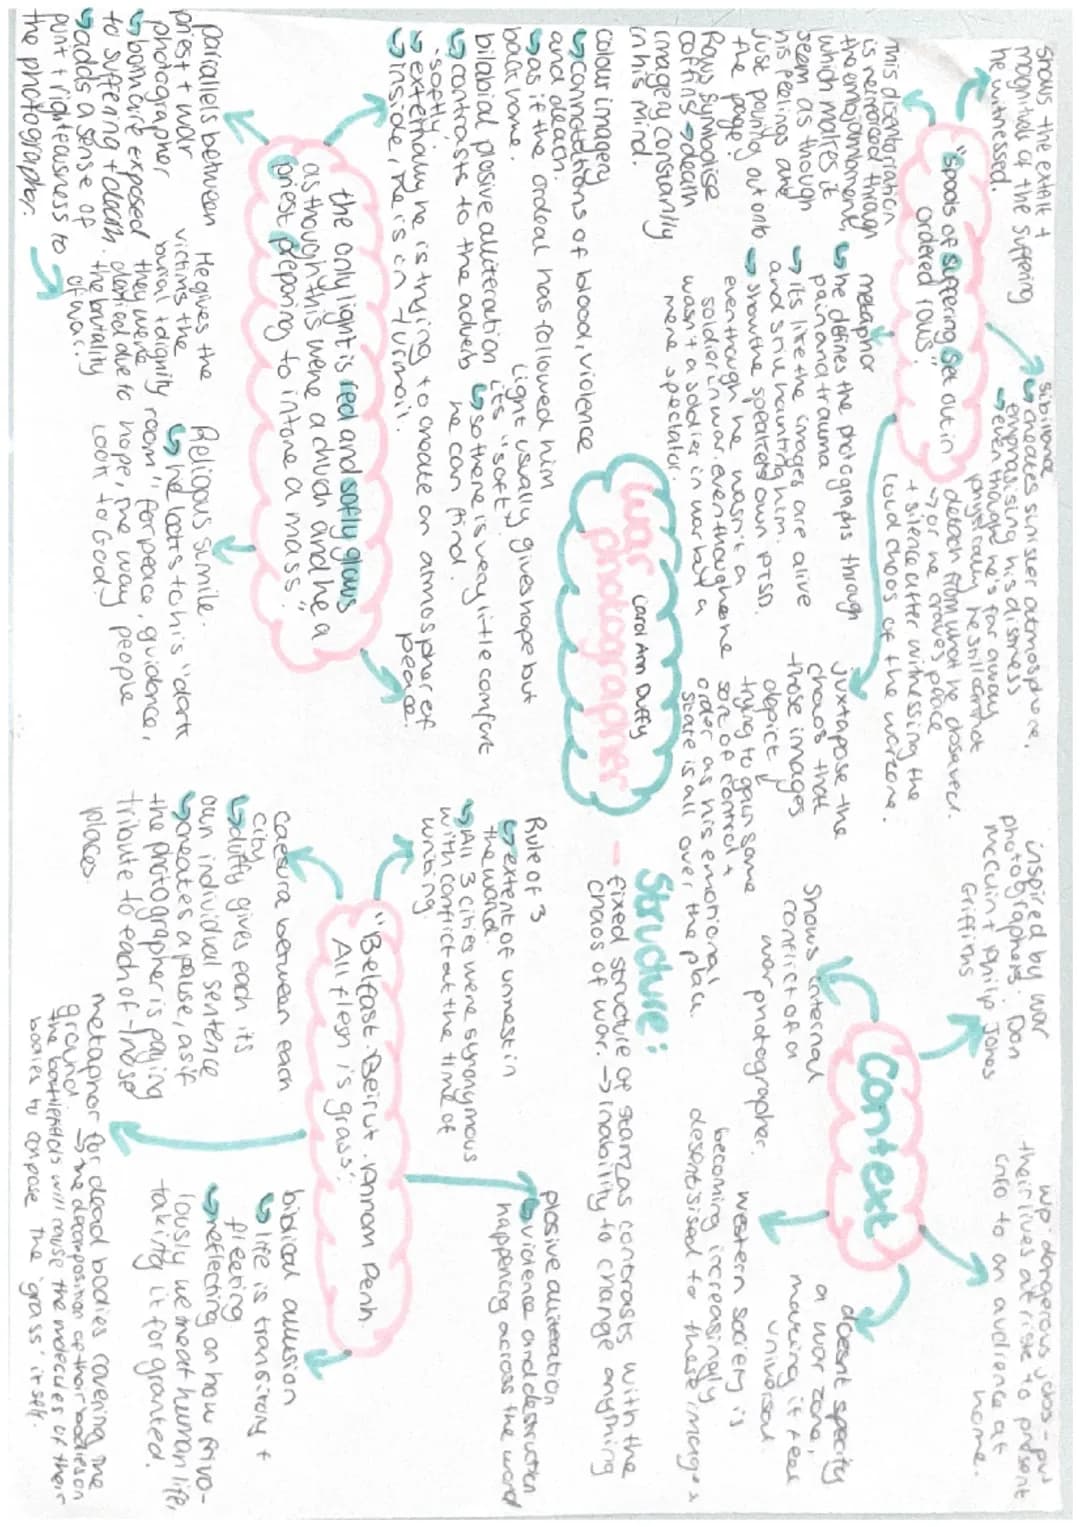 War photographer
Carol Ann Duffy
"Spools of suffering set out in
ordered rows."
shows the extent +
magnitude of the suffering
he witnessed.
sibilance
↳ creates sinister atmosphere,
emphasising his distress
↳ even though he's far away
physically he still cannot
detach from what he observed.
→ or he craves peace
+ silence after witnessing the
loud chaos of the warzone.
This disorientation
is reinforced through
the enjambment,
which makes it
seem as though
his feelings are
just pouring out onto
the page.
Rows symbolise
coffins → death
imagery constantly
in his mind.
metaphor
↳ he defines the photographs through
pain and trauma
↳ its like the images are alive
and still haunting him.
↳ shows the speakers own PTSD.
even though he wasn't a
soldier in war. even though he
wasn't a soldier in war but a
mere spectator.
juxtapose the
chaos that
those images
depict
trying to gain some
sort of control +
order as his emotional
state is all over the place.
Structure:
- fixed structure of stanzas contrasts with the
chaos of war. → inability to change anything
Context
inspired by war
photographers: Don
McCullin + Philip Jones
Griffiths
WP dangerous jobs - put
their lives at risk to present
info to an audience at
home.
Shows internal
conflict of a
war photographer.
western society is
becoming increasingly
desensitised to these images
doesnt specify
a war zone,
making it feel
universal.
"the only light is red and softly glows
as though this were a church and he a
priest preparing to intone a mass."
colour imagery
↳ connotations of blood, violence
and death.
↳ as if the ordeal has followed him
back home.
bilabial plosive alliteration
↳ contrasts to the adverb
'softly'.
↳ externally he is trying to create an atmosphere of
peace.
↳ inside, he is in turmoil.
Light usually gives hope but
it's "soft"
↳ so there is very little comfort
he can find.
parallels between
priest + war
photographer
↳ both are exposed
to suffering + death.
↳ adds a sense of
point + righteousness to
the photographer.
He gives the
victims the
burial + dignity
they were
denied due to
the brutality
of war.
Religious simile.
↳ he looks to his "dark
room" for peace, guidance,
hope, the way people
look to God
"Belfast. Beirut. Phnom Penh.
All flesh is grass".
Rule of 3
↳ extent of unrest in
the world.
↳ All 3 cities were synonymous
with conflict at the time of
writing.
plosive alliteration
↳ violence and destruction
happening across the world
caesura between each
city
↳ duffy gives each its
own individual sentence
↳ creates a pause, as if
the photographer is paying
tribute to each of those
places.
biblical allusion
↳ life is transitory +
fleeting
↳ reflecting on how frivo-
lously we treat human life,
taking it for granted.
metaphor for dead bodies covering the
ground → the decomposition of their bodies on
the battlefields will cause the molecules of their
bodies to compose the 'grass' itself.